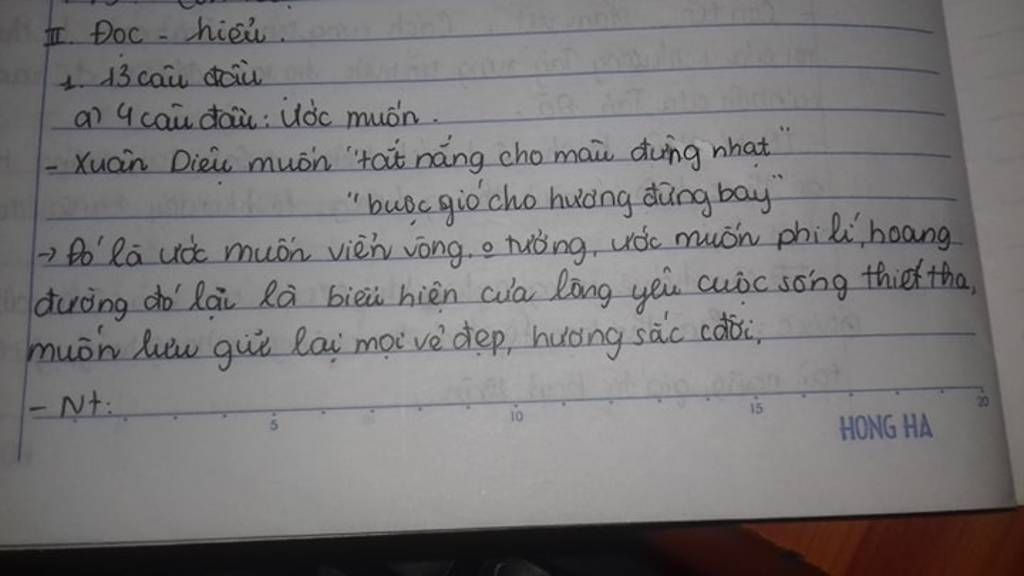 II. Đọc - hiểu.
1. 13 câu đầu
a) 4 câu đầu: Ước muốn.
- Xuân Diệu muốn "tắt nắng cho màu đừng nhạt"
"buộc gió cho hương đừng bay"
→ Đó là ước muốn viển vông, o tưởng, ước muốn phi lí, hoang
đường đó lại là biểu hiện của lòng yêu cuộc sống thiết tha,
muốn lưu giữ lại mọi vẻ đẹp, hương sắc cđời,
- Nt:
5 10 15 20
HONG HA